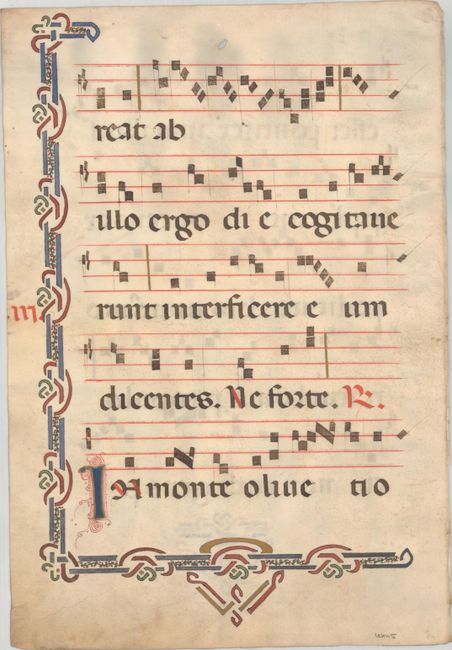 reat ab
illo ergo di e cogitaue
runt interficere e um
iii.
dicentes. Ne forte. R.
IN monte oliue tio